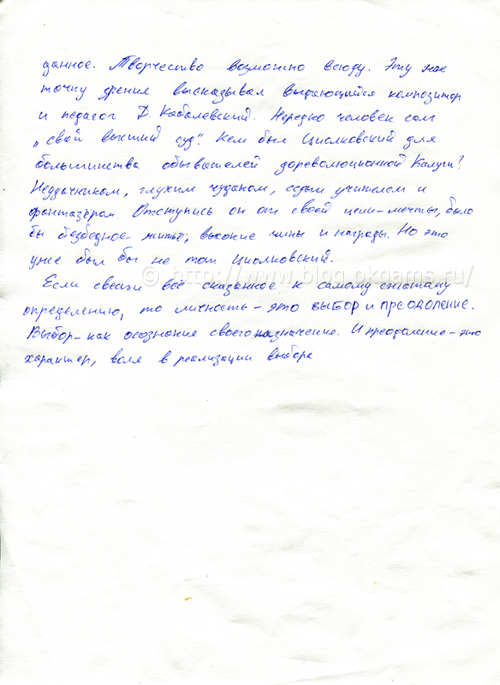 данное. Творчество возможно всюду. Эту же
точку зрения высказывал выдающийся композитор
и педагог Д. Кабалевский. Нередко человек сам
„свой высший суд". Кем был Циолковский для
большинства обывателей дореволюционной Калуги?
Неудачником, глухим чудаком, учителем и
фантазёром. Отступись он от своей цели-мечты, было
бы безбедное житьё, высокие чины и награды. Но это
уже был бы не тот Циолковский.
© http://www.blog.okgams.ru/
Если свести всё сказанное к самому сжатому
определению, то личность - это ВЫБОР И ПРЕОДОЛЕНИЕ.
Выбор - как осознание своего назначение. И преодоление - это
характер, воля в реализации выбора